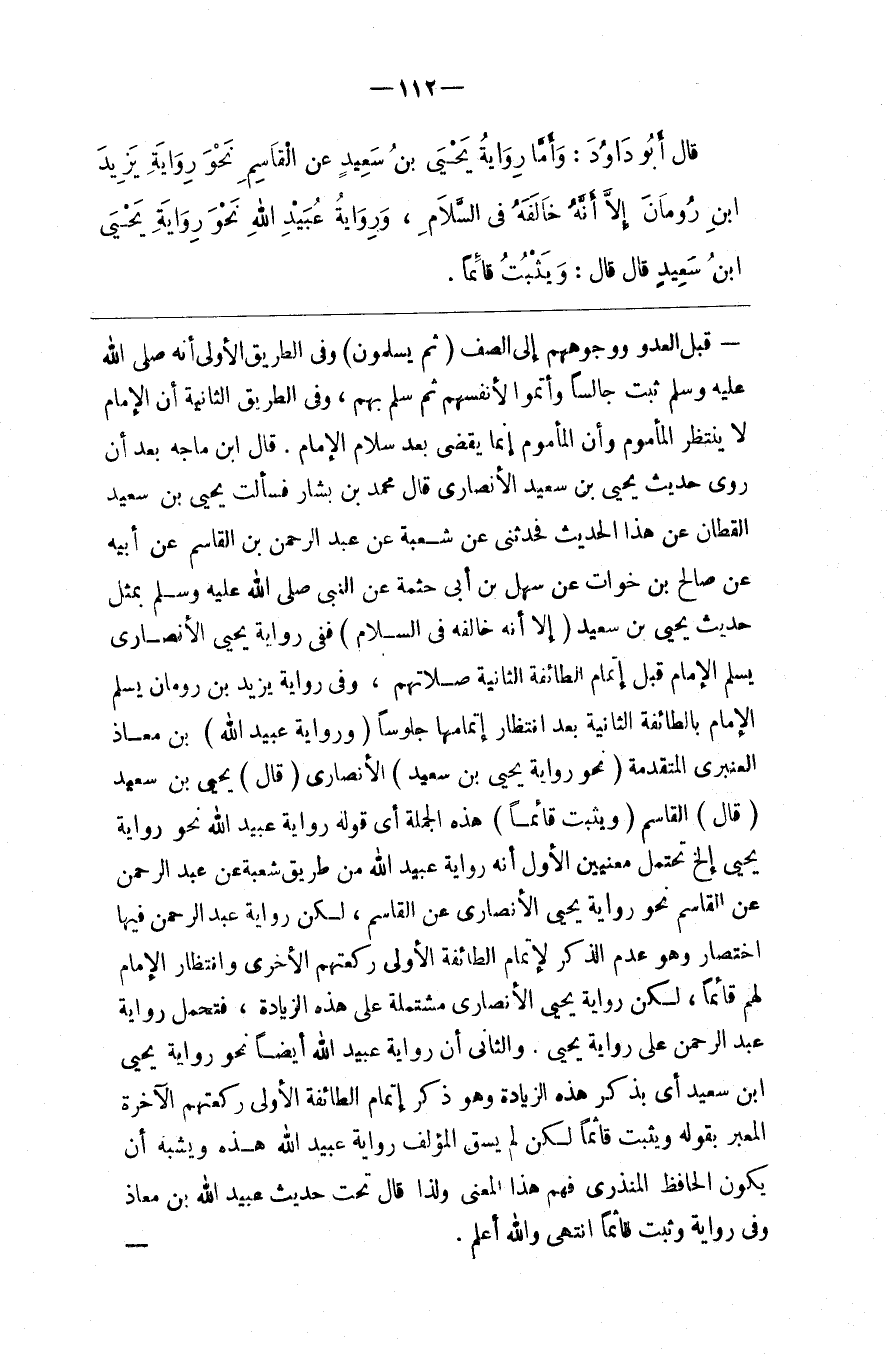 —١١٢—
قال أَبُو دَاوُدَ : وَأَمَّا رِوَايَةُ يَحْيَى بنُ سَعِيدٍ عن الْقَاسِمِ نَحْوَ رِوَايَةِ يَزِيدَ
ابنِ رُومَانَ إِلاَّ أَنَّهُ خَالَفَهُ فى السَّلَامِ ، وَرِوَايَةُ عُبَيْدِ اللهِ نَحْوَ رِوَايَةِ يَحْيَى
ابنُ سَعِيدٍ قال قال : وَيَثْبُتُ قائِماً .
— قبل العدو ووجوههم إلى الصف ( ثم يسلمون ) وفى الطريق الأولى أنه صلى الله
عليه وسلم ثبت جالساً وأتموا لأنفسهم ثم سلم بهم ، وفى الطريق الثانية أن الإمام
لا ينتظر المأموم وأن المأموم إنما يقضى بعد سلام الإمام . قال ابن ماجه بعد أن
روى حديث يحيى بن سعيد الأنصارى قال محمد بن بشار فسألت يحيى بن سعيد
القطان عن هذا الحديث فحدثنى عن شعبة عن عبد الرحمن بن القاسم عن أبيه
عن صالح بن خوات عن سهل بن أبى حثمة عن النبى صلى الله عليه وسلم بمثل
حديث يحيى بن سعيد ( إلا أنه خالفه فى السلام ) ففى رواية يحيى الأنصارى
يسلم الإمام قبل إتمام الطائفة الثانية صلاتهم ، وفى رواية يزيد بن رومان يسلم
الإمام بالطائفة الثانية بعد انتظار إتمامها جلوساً ( ورواية عبيد الله ) بن معاذ
العنبرى المتقدمة ( نحو رواية يحيى بن سعيد ) الأنصارى ( قال ) يحيى بن سعيد
( قال ) القاسم ( ويثبت قائماً ) هذه الجملة أى قوله رواية عبيد الله نحو رواية
يحيى إلخ تحتمل معنيين الأول أنه رواية عبيد الله من طريق شعبة عن عبد الرحمن
عن القاسم نحو رواية يحيى الأنصارى عن القاسم ، لكن رواية عبد الرحمن فيها
اختصار وهو عدم الذكر لإتمام الطائفة الأولى ركعتهم الأخرى وانتظار الإمام
لهم قائماً ، لكن رواية يحيى الأنصارى مشتملة على هذه الزيادة ، فتحمل رواية
عبد الرحمن على رواية يحيى . والثانى أن رواية عبيد الله أيضاً نحو رواية يحيى
ابن سعيد أى بذكر هذه الزيادة وهو ذكر إتمام الطائفة الأولى ركعتهم الآخرة
المعبر بقوله ويثبت قائماً لكن لم يسق المؤلف رواية عبيد الله هذه ويشبه أن
يكون الحافظ المنذرى فهم هذا المعنى ولذا قال تحت حديث عبيد الله بن معاذ
وفى رواية وثبت قائماً انتهى والله أعلم . —